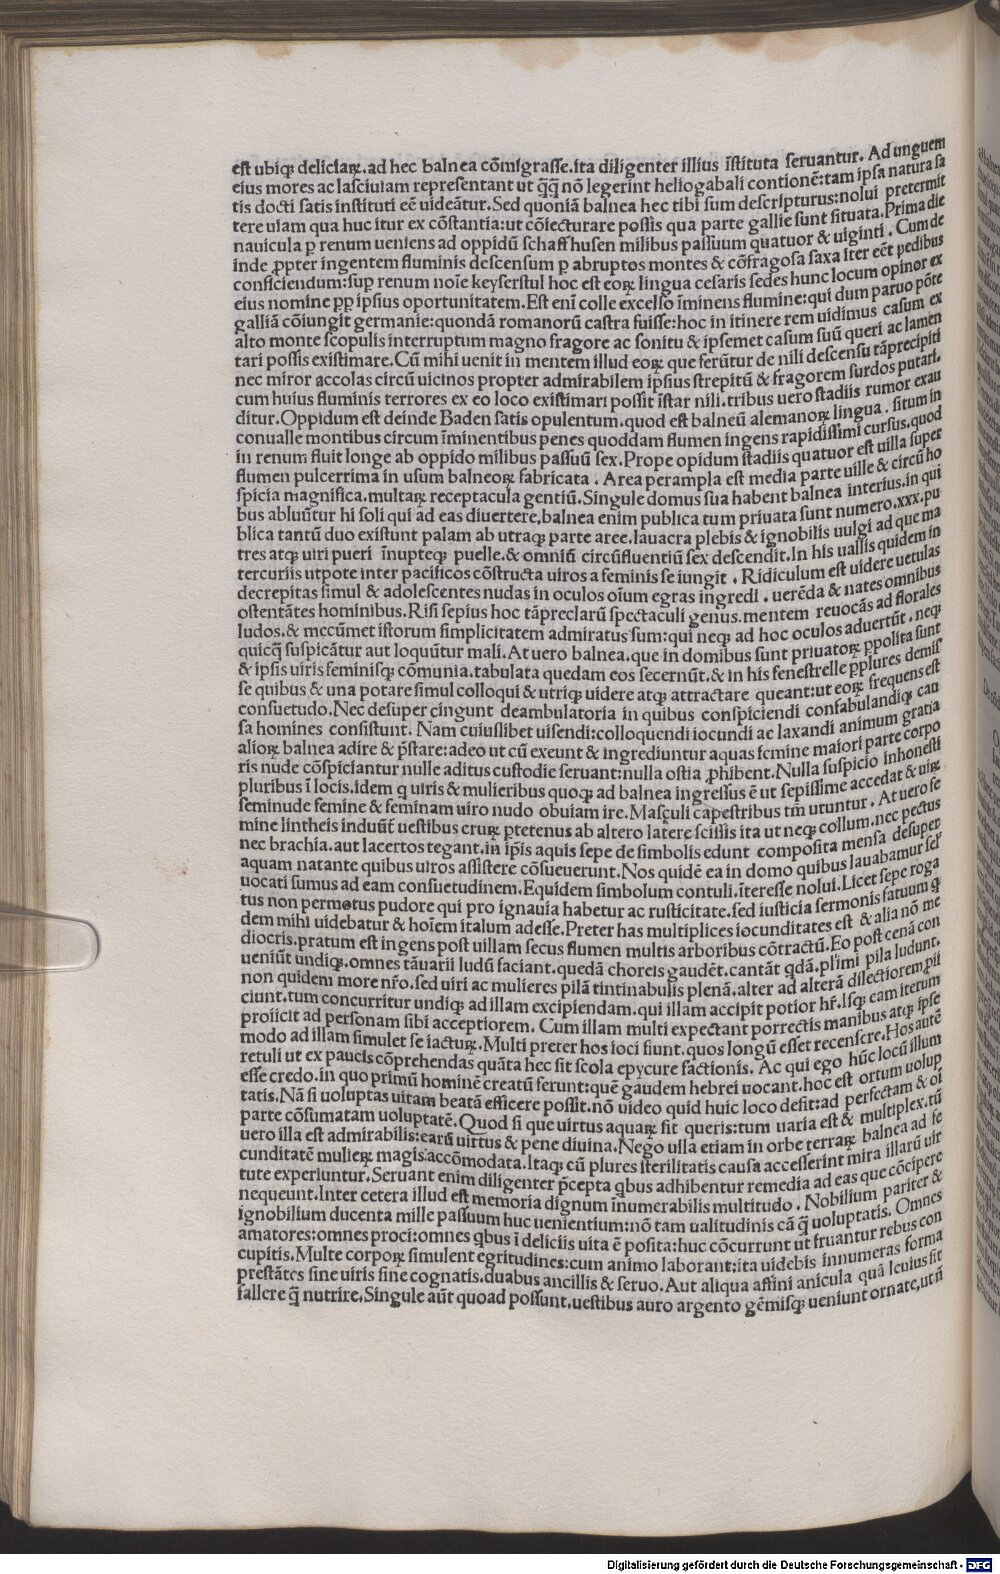 est ubiqꝫ deliciaꝝ. ad hec balnea cōmigrasse. ita diligenter illius īstituta seruantur. Ad unguem
eius mores ac lasciuiam representant ut q̄q̄ nō legerint heliogabali contionē: tam ipsa natura sa
tis docti satis instituti eē uideātur. Sed quoniā balnea hec tibi sum descripturus: nolui pretermit
tere uiam qua huc itur ex cōstantia: ut cōiecturare possis qua parte gallie sunt situata. Prima die
nauicula ꝑ renum ueniens ad oppidū schaffhusen milibus passuum quatuor & uiginti. Cum de
inde ꝓpter ingentem fluminis descensum ꝑ abruptos montes & cōfragosa saxa iter eēt pedibus
conficiendum: suꝑ renum noīe keyserstul hoc est eoꝝ lingua cesaris sedes hunc locum opinor ex
eius nomine ꝑꝑ ipsius oportunitatem. Est enī colle excelso īminens flumine: qui dum paruo pōte
galliā cōiungit germanie: quondā romanorū castra fuisse: hoc in itinere rem uidimus casum ex
alto monte scopulis interruptum magno fragore ac sonitu & ipsemet casum suū queri ac lamen
tari possis existimare. Cū mihi uenit in mentem illud eoꝝ que ferūtur de nili descensu tāprecipiti
nec miror accolas circū uicinos propter admirabilem ipsius strepitū & fragorem surdos putari.
cum huius fluminis terrores ex eo loco existimari possit īstar nili. tribus uero stadiis rumor exau
ditur. Oppidum est deinde Baden satis opulentum. quod est balneū alemanoꝝ lingua. situm in
conualle montibus circum īminentibus penes quoddam flumen ingens rapidissimi cursus. quod
in renum fluit longe ab oppido milibus passuū sex. Prope opidum stadiis quatuor est uilla super
flumen pulcerrima in usum balneoꝝ fabricata. Area perampla est media parte uille & circū ho
spicia magnifica. multaꝝ receptacula gentiū. Singule domus sua habent balnea interius. in qui
bus abluūtur hi soli qui ad eas diuertere. balnea enim publica tum priuata sunt numero. xxx. pu
blica tantū duo existunt palam ab utraqꝫ parte aree. lauacra plebis & ignobilis uulgi ad que ma
tres atqꝫ uiri pueri īnupteqꝫ puelle. & omniū circūfluentiū sex descendit. In his uallis quidem in
tercuriis utpote inter pacificos cōstructa uiros a feminis se iungit. Ridiculum est uidere uetulas
decrepitas simul & adolescentes nudas in oculos oīum egras ingredi. uerēda & nates omnibus
ostentātes hominibus. Risi sepius hoc tāpreclarū spectaculi genus. mentem reuocās ad florales
ludos. & meccūmet istorum simplicitatem admiratus sum: qui neqꝫ ad hoc oculos aduertūt. neqꝫ
quicq̄ suspicātur aut loquūtur mali. At uero balnea. que in domibus sunt priuatoꝝ ꝑpolita sunt
& ipsis uiris feminisqꝫ cōmunia. tabulata quedam eos secernūt. & in his fenestrelle ꝑplures demis
se quibus & una potare simul colloqui & utriqꝫ uidere atqꝫ attractare queant: ut eoꝝ frequens est
consuetudo. Nec desuper cingunt deambulatoria in quibus conspiciendi confabulandiqꝫ cau
sa homines consistunt. Nam cuiuslibet uisendi: colloquendi iocundi ac laxandi animum gratia
alioꝝ balnea adire & p̄stare: adeo ut cū exeunt & ingrediuntur aquas femine maiori parte corpo
ris nude cōspiciantur nulle aditus custodie seruant: nulla ostia ꝓhibent. Nulla suspicio inhonesti
pluribus ī locis. idem q uiris & mulieribus quoqꝫ ad balnea ingressus ē ut sepissime accedat & uiꝝ
seminude femine & feminam uiro nudo obuiam ire. Masculi capestribus tm̄ utuntur. At uero fe
mine lintheis induūt uestibus cruꝝ ꝑtetenus ab altero latere scissis ita ut neqꝫ collum. nec pectus
nec brachia. aut lacertos tegant. in īpīs aquis sepe de simbolis edunt composita mensa desuper
aquam natante quibus uiros assistere cōsueuerunt. Nos quidē ea in domo quibus lauabamur sel
uocati sumus ad eam consuetudinem. Equidem simbolum contuli. īteresse nolui. Licet sepe roga
tus non permotus pudore qui pro ignauia habetur ac rusticitate. sed iusticia sermonis fatuum q
dem mihi uidebatur & hoīem italum adesse. Preter has multiplices iocunditates est & alia nō me
diocris. pratum est ingens post uillam secus flumen multis arboribus cōtractū. Eo post cenā con
ueniūt undiqꝫ. omnes tāuarii ludū faciant. quedā choreis gaudēt. cantāt qdā. pl'imi pila ludunt.
non quidem more nr̄o. sed uiri ac mulieres pilā tintinabulis plenā. alter ad alterā dilectiorem ꝓii
ciunt. tum concurritur undiqꝫ ad illam excipiendam. qui illam accipit potior hr̄. Isqꝫ eam iterum
proiicit ad personam sibi acceptiorem. Cum illam multi expectant porrectis manibus atqꝫ ipse
modo ad illam simulet se iactuꝝ. Multi preter hos ioci fiunt. quos longū esset recensere. Hos autē
retuli ut ex paucis cōprehendas quāta hec sit scola epycure factionis. Ac qui ego hūc locū illum
esse credo. in quo primū hominē creatū ferunt: quē gaudem hebrei uocant. hoc est ortum uolup
tatis. Nā si uoluptas uitam beatā efficere possit. nō uideo quid huic loco desit: ad perfectam & oī
parte cōsumatam uoluptatē. Quod si que uirtus aquaꝝ sit queris: tum uaria est & multiplex. tū
uero illa est admirabilis: earū uirtus & pene diuina. Nego ulla etiam in orbe terraꝝ balnea ad fe
cunditatē mulieꝝ magis accōmodata. Itaqꝫ cū plures sterilitatis causa accesserint mira illarū uir
tute experiuntur. Seruant enim diligenter p̄cepta qbus adhibentur remedia ad eas que cōcipere
nequeunt. Inter cetera illud est memoria dignum īnumerabilis multitudo. Nobilium pariter &
ignobilium ducenta mille passuum huc uenientium: nō tam ualitudinis cā q̄ uoluptatis. Omnes
amatores: omnes proci: omnes qbus ī deliciis uita ē posita: huc cōcurrunt ut fruantur rebus con
cupitis. Multe corpoꝝ simulent egritudines: cum animo laborant: ita uidebis innumeras forma
prestātes sine uiris sine cognatis. duabus ancillis & seruo. Aut aliqua affini anicula quā leuius sit
fallere q̄ nutrire. Singule aūt quoad possunt. uestibus auro argento gēmisqꝫ ueniunt ornate, ut ñ
Digitalisierung gefördert durch die Deutsche Forschungsgemeinschaft - DFG